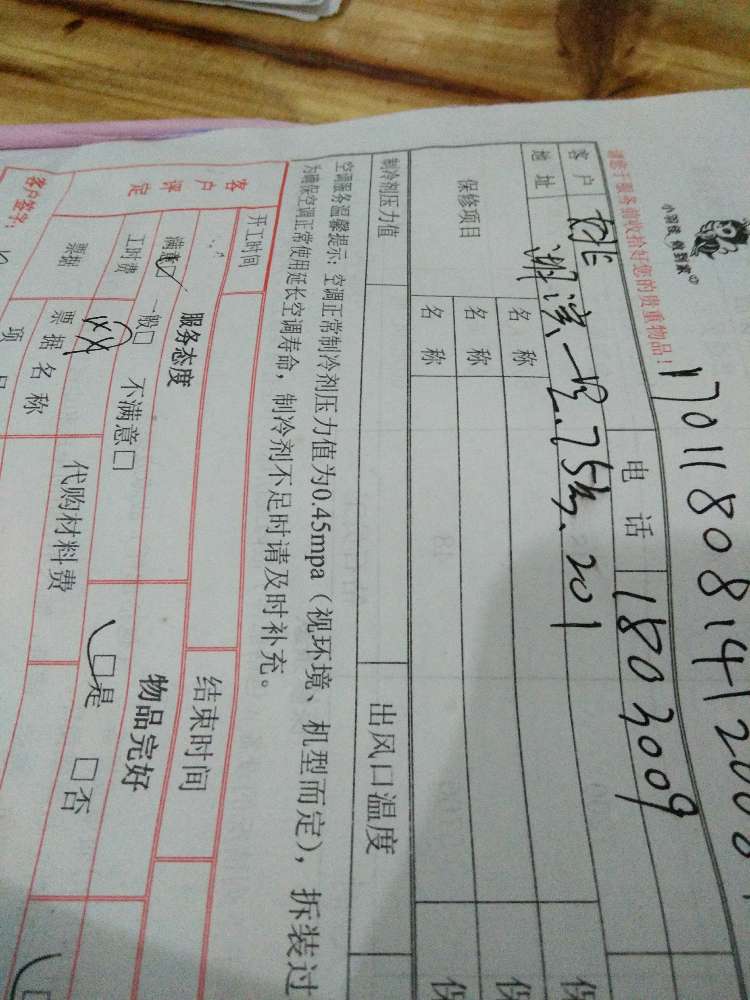 小羽佳 做到家
请您于服务前收拾好您的贵重物品！
170118081412000
客户 姚 电话 1803009
地址 湖滨一里75号、201
保修项目 名称 保
名称 保
名称 保
制冷剂压力值 出风口温度
空调服务温馨提示：空调正常制冷剂压力值为0.45mpa（视环境、机型而定），拆装过
为确保空调正常使用延长空调寿命，制冷剂不足时请及时补充。
开工时间 结束时间
客户评定 服务态度 物品完好
满意☑ 一般□ 不满意□ □是 □否
工时费 代购材料费
票据 票据名称
客户签字：